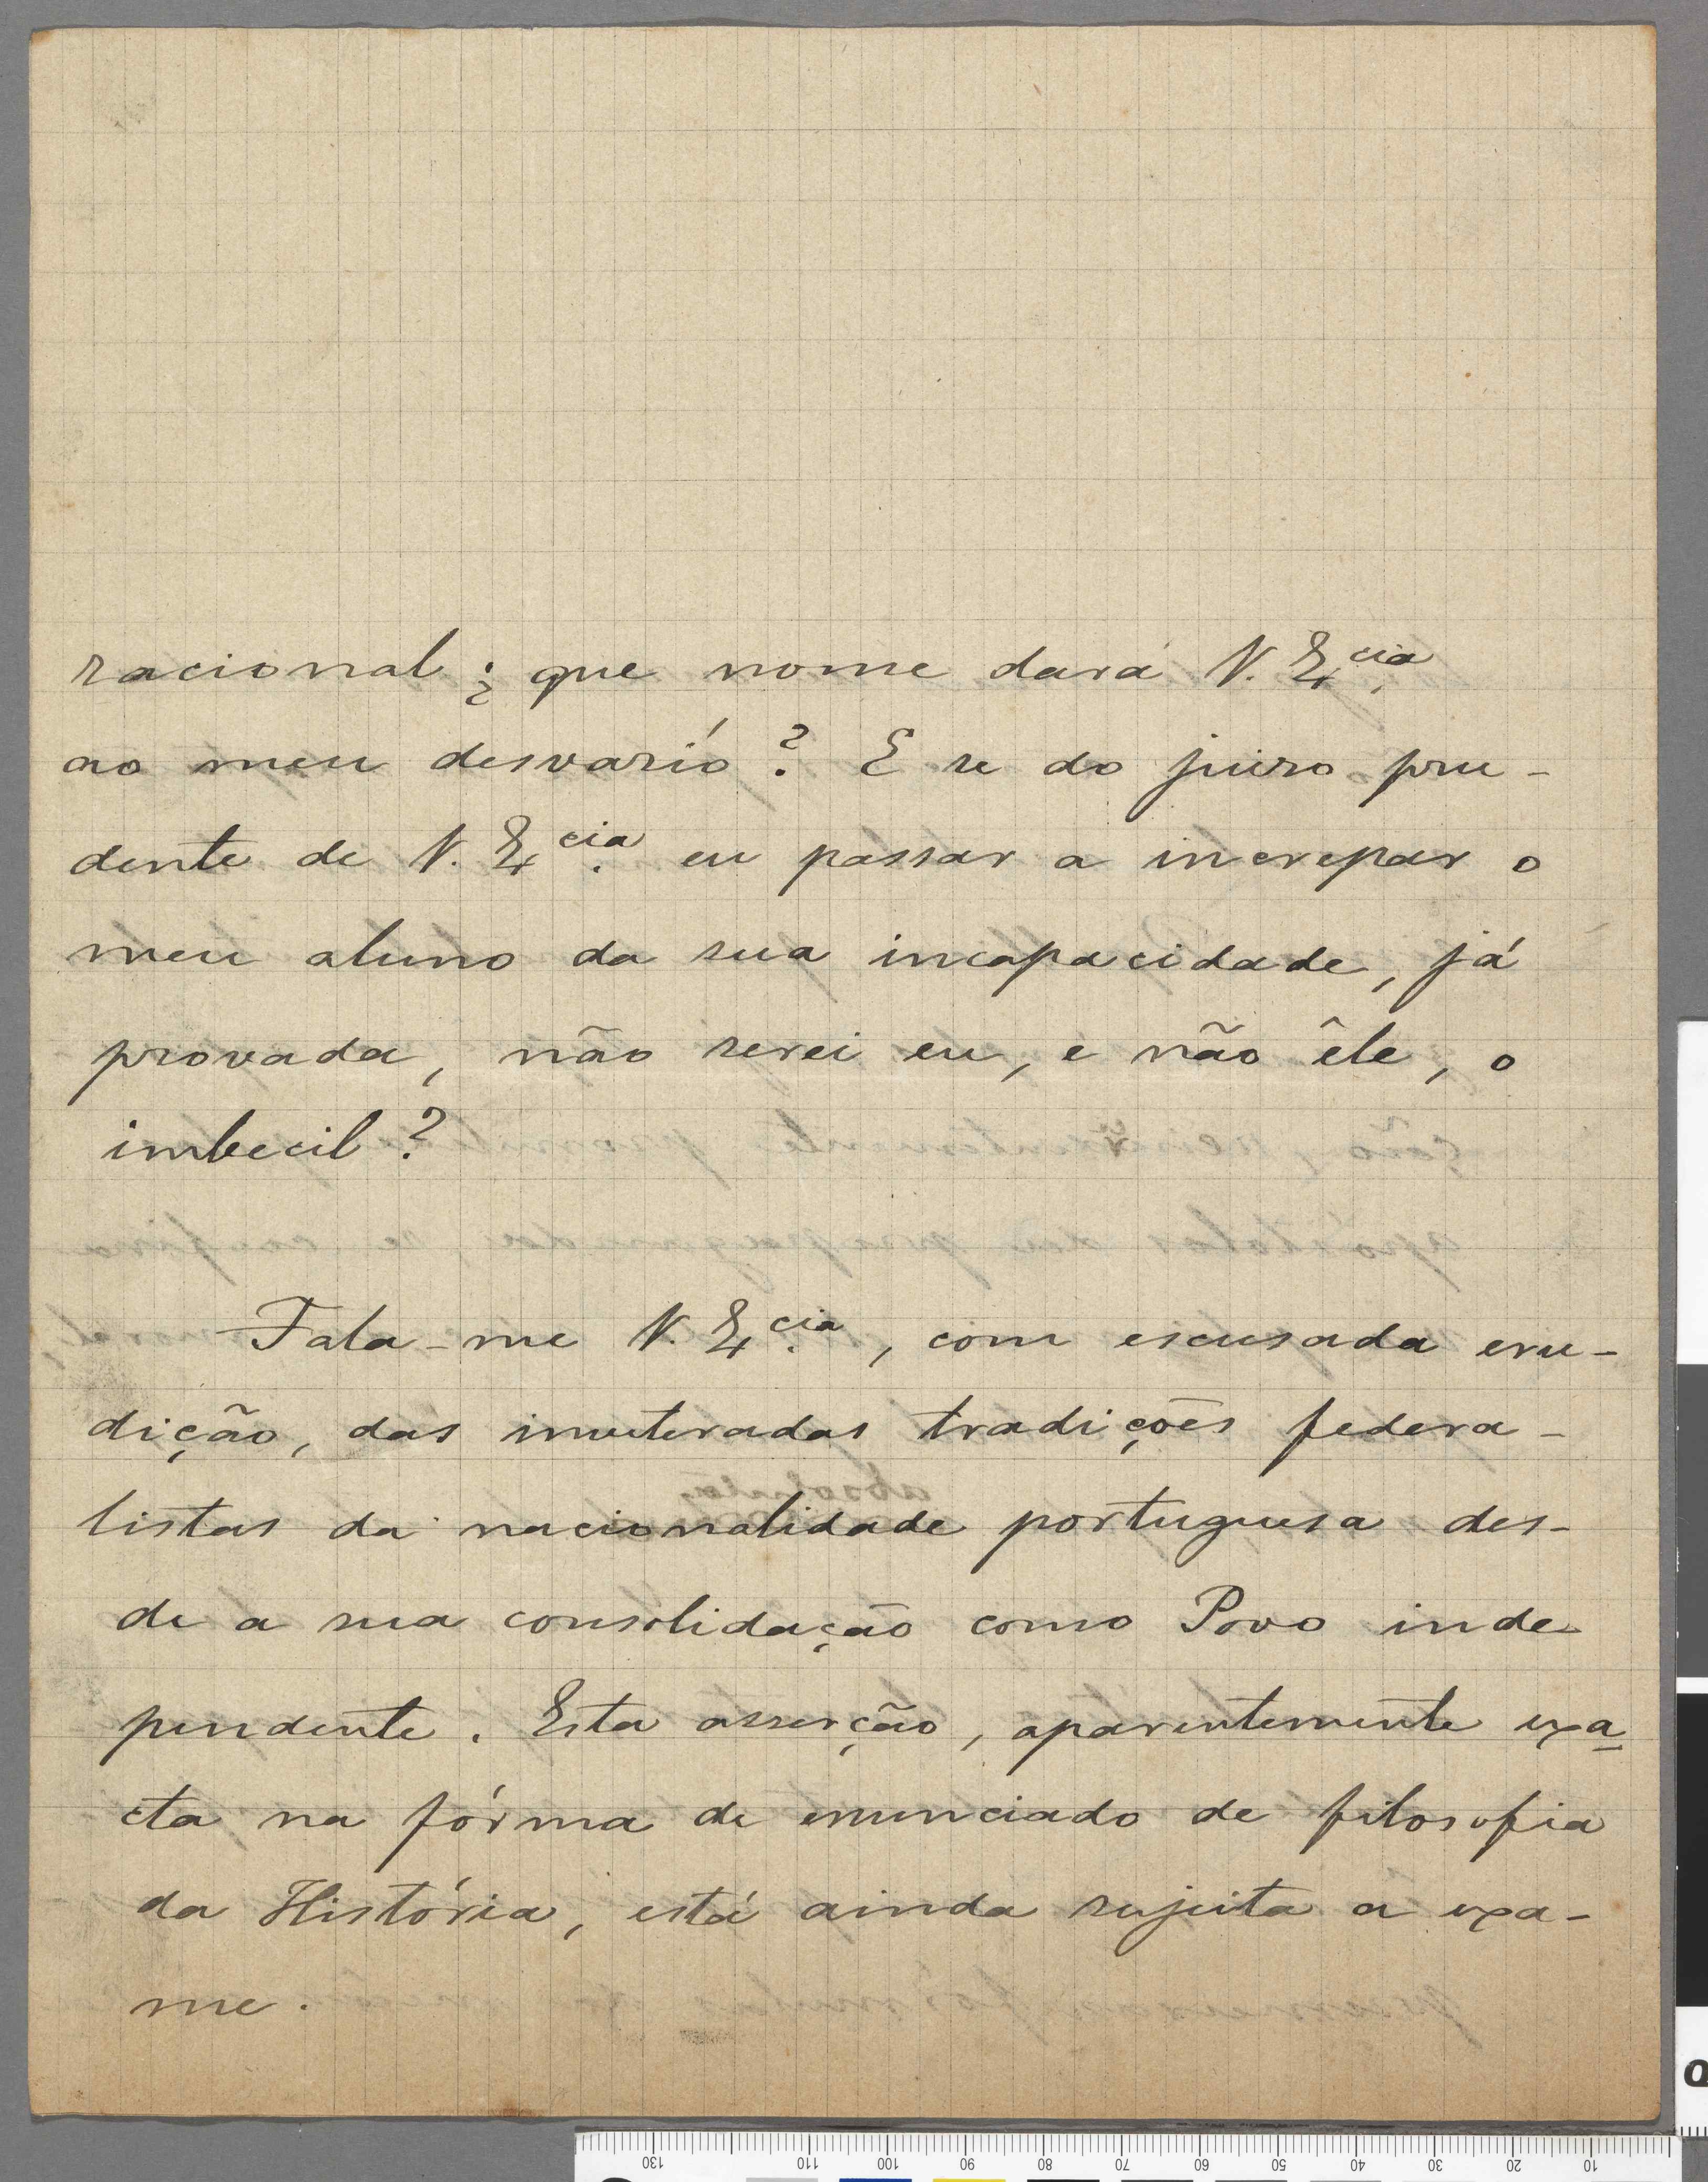 racional ¿ que nome dará V. Ex.cia
ao meu desvarío? E se do juizo pru-
dente de V. Ex.cia eu passar a increpar o
meu aluno da sua incapacidade, já
provada, não serei eu, e não êle, o
imbecil?
Fala-me V. Ex.cia, com escusada eru-
dição, das inveteradas tradições federa-
listas da nacionalidade portuguesa des-
de a sua consolidação como Povo inde-
pendente. Esta asserção, aparentemente exa-
cta na fórma de enunciado de filosofia
da História, está ainda sujeita a exa-
me.
130 110 100 90 80 70 60 50 40 30 20 10